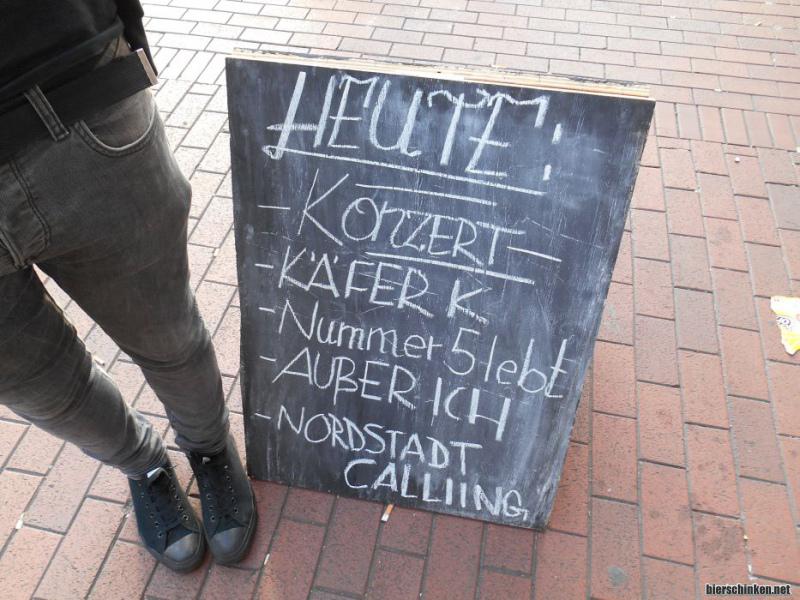 HEUTE:
- KONZERT -
- KÄFER K
- Nummer 5 lebt
- AUßER ICH
- NORDSTADT
CALLIING
bierschinken.net